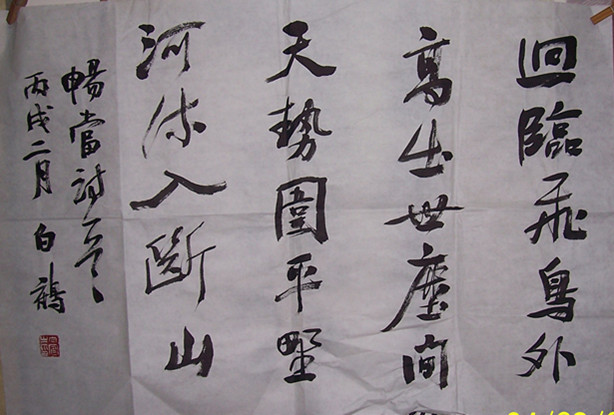 迴臨飛鳥外
高出世塵間
天勢圍平野
河流入斷山
暢當詩
丙戌二月 白